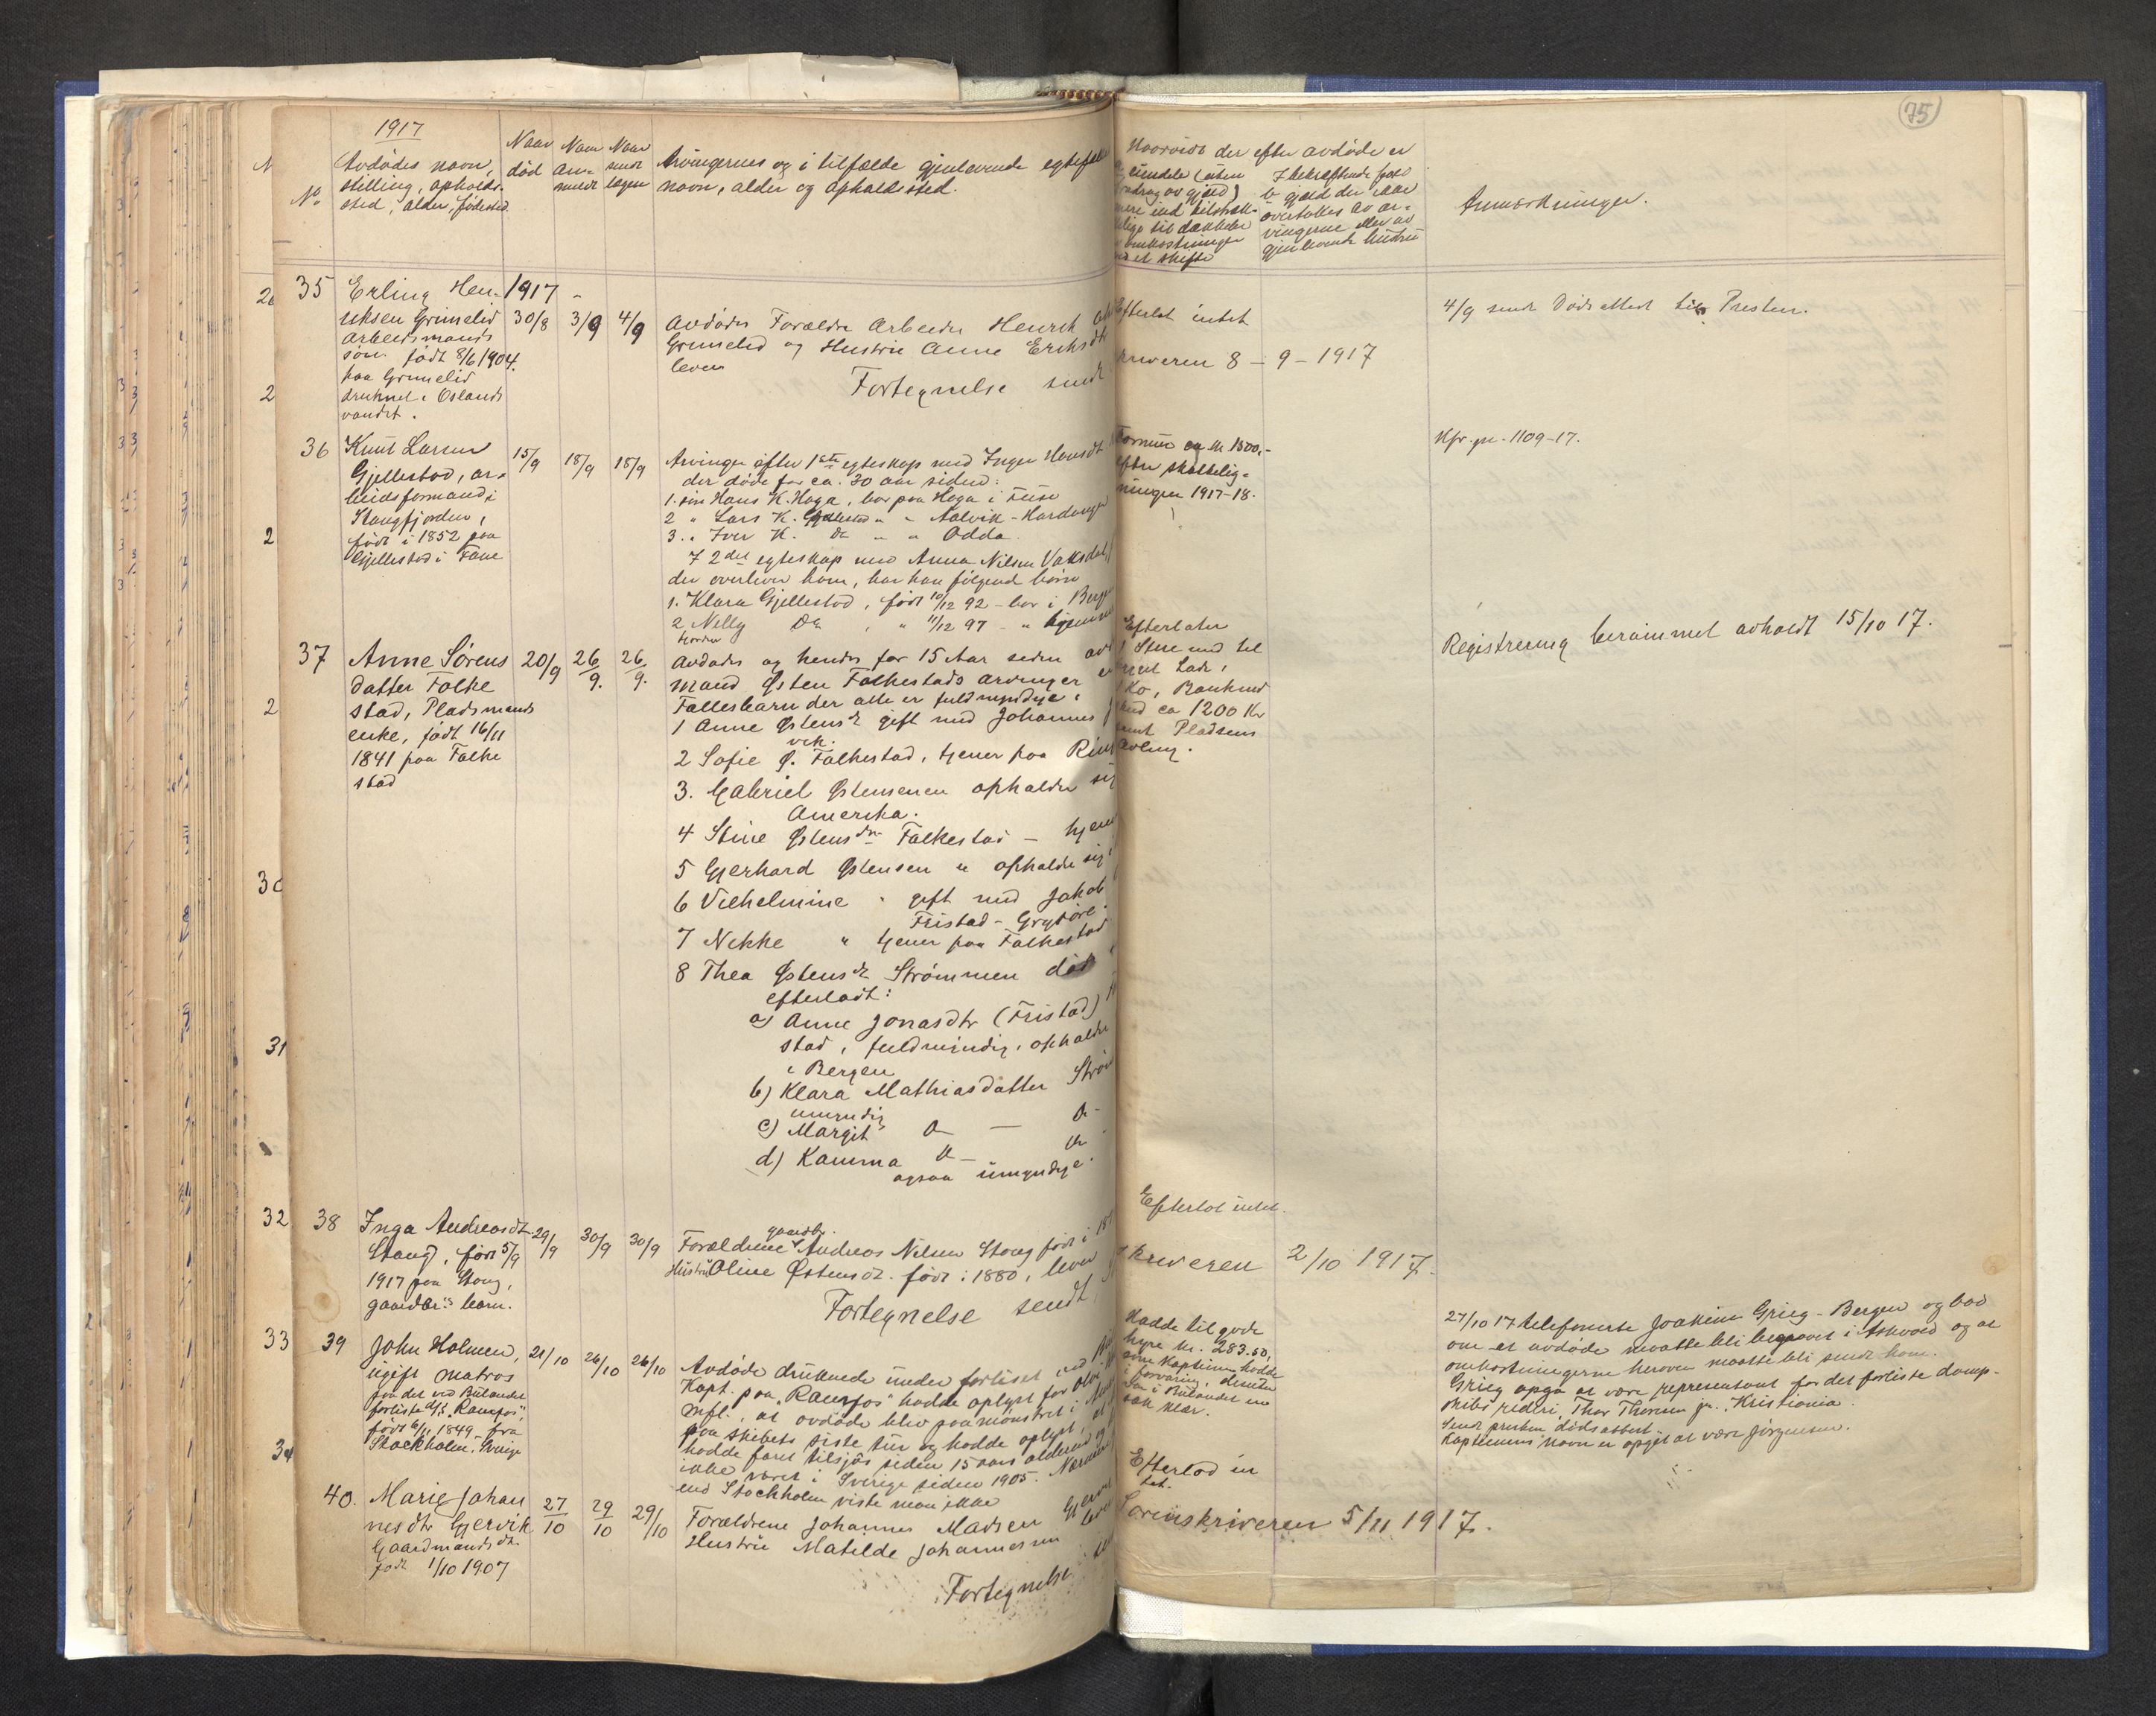 75
1917
No
Avdødes navn,
stilling, opholds-
sted, alder, fødested.
Naar
død
Naar
an-
meldt
Naar
sendt
lagen
Arvingernes og i tilfælde gjenlevende egtefæl
navn, alder og opholdssted.
Hvorvidt der efter avdøde er
eiendele (uten
fradrag av gjæld)
mere end tilstræk-
kelige til dækkelse
omkostninger
ved et skifte
I bekræftende fald
b gjæld der ikke
overtakes av ar-
vingerne eller av
gjenlevende hustru
Anmerkninger.
35
Erling Hen-
riksen Grimelid
arbeidsmands
søn. født 8/6 1904.
paa Grimelid
druknet i Oslands
vandet.
1917
30/8 3/9 4/9
Avdødes Forældre Arbeider Henrik
Grimelid og Hustru Anne Eriksdt
lever
Fortegnelse sendt
Efterlot intet
skriveren 8 - 9 - 1917
4/9 sendt Dødsattest til Presten.
36
Knut Larsen
Gjellestad, ar-
beidsformand i
Stangfjorden,
født i 1852 paa
Gjellestad i Fane
15/9 18/9 18/9
Arvinger efter 1ste egteskap med Inger Hansdt
der døde for ca. 30 aar siden:
1. søn Hans K. Haga, bor paa Haga i Fuse
2 " Lars K. Gjellestad " " Aalvik - Hardanger
3. " Iver K. Do " " Odda.
I 2det egteskap med Anna Nilsen Vaksdal,
der overlever ham, har han følgende børn
1. Klara Gjellestad, født 10/12 92 - bor i Bergen
2 Nelly Do " " 11/12 97 - " hjemme
Formue ca kr 1500,-
efter skattelig-
ningen 1917-18.
Kfr. jnr. 1109-17.
37
Anne Sørens
datter Falke
stad, Pladsmands
enke, født 16/11
1841 paa Falke
stad
20/9 26/9. 26/9.
Avdødes og hendes for 15 Aar siden
mand Østen Falkestads arvinger er
Fællesbarn der alle er fuldmyndige:
1 Anne Østensdt gift med Johannes
vik.
2 Sofie Ø. Falkestad, tjener paa
3. Gabriel Østensenen opholder sig
Amerika.
4 Stine Østensdtr Falkestad - hjem
5 Gjerhard Østensen " opholder sig
6 Vilhelmine " gift med Jakob
Fristad - Grytøre.
7 Nikke " tjener paa Falkestad
8 Thea Østensdt Strømmen død
efterladt:
a) Anne Jonasdtr (Fristad)
stad, fuldmyndig, opholder
i Bergen
b) Klara Mathiasdatter
umyndig
c) Margit
d) Kamma
ogsaa umyndige.
Efterlater
1 Stue med til
hørende Lade,
1 Ko, Bankind
skud ca 1200 Kr
samt Pladsens
Avling.
Registrering berammet avholdt 15/10 17.
38
Inga Andreasdt
Stang, født 5/9
1917 paa Stang,
gaardbr.s barn.
29/9 30/9 30/9
gaardbr.
Forældrene Andreas Nilsen Stang født i
Hustru Oline Østensdt. født i 1880, lever
Fortegnelse sendt
Efterlot intet.
skriveren 2/10 1917.
39
John Holmen,
ugift matros
fra det ved Bulandet
forliste d/s "Ramfos",
født 6/11 1849 fra
Stockholm, Sverige
21/10 26/10 26/10
Avdøde druknede under forliset
Kapt. paa "Ramfos" hadde oplyst for
mfl., at avdøde blev paamønstret i
paa skibets siste tur og hadde oplyst, at
hadde faret tilsjøs siden 15 aars alderen og
ikke været i Sverige siden 1905. Nærmere
end Stockholm viste man ikke
Hadde til gode
hyre kr. 283.50,
som Kapteinen hadde
i forvaring, desuten
27/10 17 telefonerte Joakim Grieg - Bergen og bad
om at avdøde maatte bli begravet i Askvold og at
omkostningerne herover maatte bli sendt ham.
Grieg opga at være representant for det forliste damp-
skibs rederi, Thor Thoresen jr., Kristiania.
Sendt presten dødsattest
Kapteinens navn er opgit at være Jørgensen.
40.
Marie Johan
nesdtr Gjervik
Gaardmandsdt.
født 1/10 1907
27/10 29/10 29/10
Forældrene Johannes Madsen
Hustru Matilde Johannesen
Fortegnelse
Efterlod in
tet.
Sorenskriveren 5/11 1917.
2
2
2
30
31
32
33
34